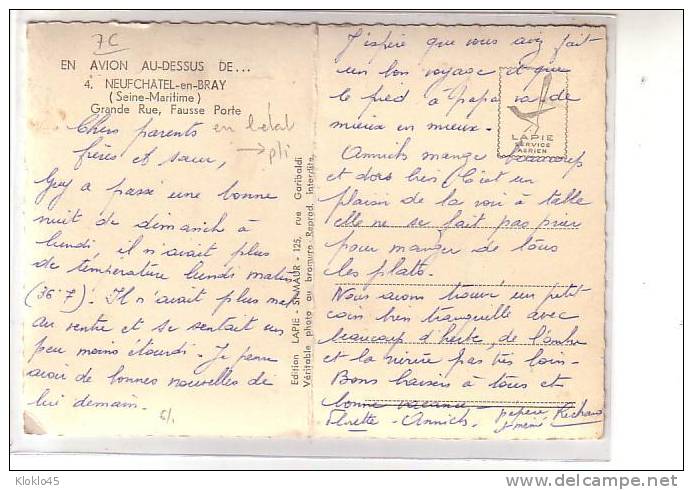 7C
EN AVION AU-DESSUS DE...
4. NEUFCHATEL-en-BRAY
(Seine-Maritime)
Grande Rue, Fausse Porte
en l'état
→ pli
Chers parents
frères et sœur,
Guy a passé une bonne
nuit de dimanche à
lundi, il n'avait plus
de température lundi matin
(36°7). Il n'avait plus mal
au ventre et se sentait un
peu moins étourdi. Je pense
avoir de bonnes nouvelles de
lui demain.
6/.
Edition LAPIE - ST-MAUR - 125, rue Garibaldi
Véritable photo au bromure - Reprod. interdite.
J'espère que vous avez fait
un bon voyage et que
le pied à Papa va de
mieux en mieux.
LAPIE
SERVICE
AERIEN
Annick mange beaucoup
et dors très. C'est un
plaisir de la voir à table
elle ne se fait pas prier
pour manger de tous
les plats.
Nous avons trouvé un petit
coin bien tranquille avec
beaucoup d'herbe, de l'ombre
et la rivière pas très loin.
Bons baisers à tous et
bonne vacance
Annick
pépère Richard
mémé
Kloklo45
www.delcampe.net